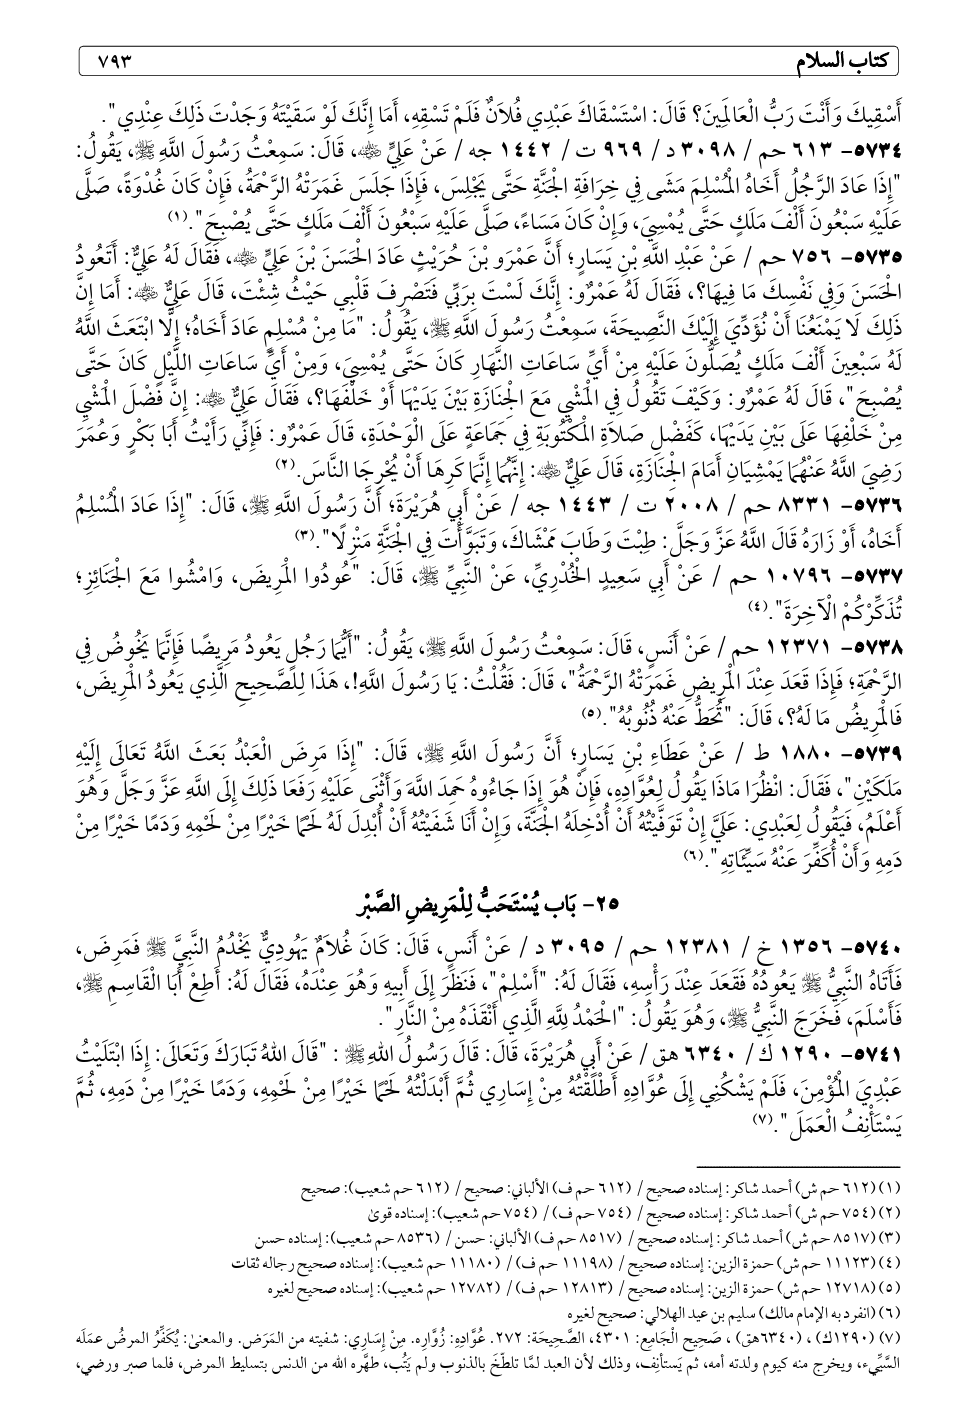 كتاب السلام ٧٩٣
أَسْقِيكَ وَأَنْتَ رَبُّ الْعَالَمِينَ؟ قَالَ: اسْتَسْقَاكَ عَبْدِي فُلَانٌ فَلَمْ تَسْقِهِ، أَمَا إِنَّكَ لَوْ سَقَيْتَهُ وَجَدْتَ ذَلِكَ عِنْدِي".
٥٧٣٤- ٦١٣ حم / ٣٠٩٨ د / ٩٦٩ ت / ١٤٤٢ جه / عَنْ عَلِيٍّ ﵁، قَالَ: سَمِعْتُ رَسُولَ اللَّهِ ﷺ، يَقُولُ:
"إِذَا عَادَ الرَّجُلُ أَخَاهُ الْمُسْلِمَ مَشَى فِي خِرَافَةِ الْجَنَّةِ حَتَّى يَجْلِسَ، فَإِذَا جَلَسَ غَمَرَتْهُ الرَّحْمَةُ، فَإِنْ كَانَ غُدْوَةً، صَلَّى
عَلَيْهِ سَبْعُونَ أَلْفَ مَلَكٍ حَتَّى يُمْسِيَ، وَإِنْ كَانَ مَسَاءً، صَلَّى عَلَيْهِ سَبْعُونَ أَلْفَ مَلَكٍ حَتَّى يُصْبِحَ". (١)
٥٧٣٥- ٧٥٦ حم / عَنْ عَبْدِ اللَّهِ بْنِ يَسَارٍ؛ أَنَّ عَمْرَو بْنَ حُرَيْثٍ عَادَ الْحَسَنَ بْنَ عَلِيٍّ ﵁، فَقَالَ لَهُ عَلِيٌّ: أَتَعُودُ
الْحَسَنَ وَفِي نَفْسِكَ مَا فِيهَا؟، فَقَالَ لَهُ عَمْرٌو: إِنَّكَ لَسْتَ بِرَبِّي فَتَصْرِفَ قَلْبِي حَيْثُ شِئْتَ، قَالَ عَلِيٌّ ﵁: أَمَا إِنَّ
ذَلِكَ لَا يَمْنَعُنَا أَنْ نُؤَدِّيَ إِلَيْكَ النَّصِيحَةَ، سَمِعْتُ رَسُولَ اللَّهِ ﷺ، يَقُولُ: "مَا مِنْ مُسْلِمٍ عَادَ أَخَاهُ؛ إِلَّا ابْتَعَثَ اللَّهُ
لَهُ سَبْعِينَ أَلْفَ مَلَكٍ يُصَلُّونَ عَلَيْهِ مِنْ أَيِّ سَاعَاتِ النَّهَارِ كَانَ حَتَّى يُمْسِيَ، وَمِنْ أَيِّ سَاعَاتِ اللَّيْلِ كَانَ حَتَّى
يُصْبِحَ"، قَالَ لَهُ عَمْرٌو: وَكَيْفَ تَقُولُ فِي الْمَشْيِ مَعَ الْجِنَازَةِ بَيْنَ يَدَيْهَا أَوْ خَلْفَهَا؟، فَقَالَ عَلِيٌّ ﵁: إِنَّ فَضْلَ الْمَشْيِ
مِنْ خَلْفِهَا عَلَى بَيْنِ يَدَيْهَا، كَفَضْلِ صَلَاةِ الْمَكْتُوبَةِ فِي جَمَاعَةٍ عَلَى الْوَحْدَةِ، قَالَ عَمْرٌو: فَإِنِّي رَأَيْتُ أَبَا بَكْرٍ وَعُمَرَ
رَضِيَ اللَّهُ عَنْهُمَا يَمْشِيَانِ أَمَامَ الْجِنَازَةِ، قَالَ عَلِيٌّ ﵁: إِنَّهُمَا إِنَّمَا كَرِهَا أَنْ يُحْرِجَا النَّاسَ. (٢)
٥٧٣٦- ٨٣٣١ حم / ٢٠٠٨ ت / ١٤٤٣ جه / عَنْ أَبِي هُرَيْرَةَ؛ أَنَّ رَسُولَ اللَّهِ ﷺ، قَالَ: "إِذَا عَادَ الْمُسْلِمُ
أَخَاهُ، أَوْ زَارَهُ قَالَ اللَّهُ عَزَّ وَجَلَّ: طِبْتَ وَطَابَ مَمْشَاكَ، وَتَبَوَّأْتَ فِي الْجَنَّةِ مَنْزِلًا". (٣)
٥٧٣٧- ١٠٧٩٦ حم / عَنْ أَبِي سَعِيدٍ الْخُدْرِيِّ، عَنْ النَّبِيِّ ﷺ، قَالَ: "عُودُوا الْمَرِيضَ، وَامْشُوا مَعَ الْجَنَائِزِ؛
تُذَكِّرْكُمْ الْآخِرَةَ". (٤)
٥٧٣٨- ١٢٣٧١ حم / عَنْ أَنَسٍ، قَالَ: سَمِعْتُ رَسُولَ اللَّهِ ﷺ، يَقُولُ: "أَيُّمَا رَجُلٍ يَعُودُ مَرِيضًا فَإِنَّمَا يَخُوضُ فِي
الرَّحْمَةِ؛ فَإِذَا قَعَدَ عِنْدَ الْمَرِيضِ غَمَرَتْهُ الرَّحْمَةُ"، قَالَ: فَقُلْتُ: يَا رَسُولَ اللَّهِ!، هَذَا لِلصَّحِيحِ الَّذِي يَعُودُ الْمَرِيضَ،
فَالْمَرِيضُ مَا لَهُ؟، قَالَ: "تُحَطُّ عَنْهُ ذُنُوبُهُ". (٥)
٥٧٣٩- ١٨٨٠ ط / عَنْ عَطَاءِ بْنِ يَسَارٍ؛ أَنَّ رَسُولَ اللَّهِ ﷺ، قَالَ: "إِذَا مَرِضَ الْعَبْدُ بَعَثَ اللَّهُ تَعَالَى إِلَيْهِ
مَلَكَيْنِ"، فَقَالَ: انْظُرَا مَاذَا يَقُولُ لِعُوَّادِهِ، فَإِنْ هُوَ إِذَا جَاءُوهُ حَمِدَ اللَّهَ وَأَثْنَى عَلَيْهِ رَفَعَا ذَلِكَ إِلَى اللَّهِ عَزَّ وَجَلَّ وَهُوَ
أَعْلَمُ، فَيَقُولُ لِعَبْدِي: عَلَيَّ إِنْ تَوَفَّيْتُهُ أَنْ أُدْخِلَهُ الْجَنَّةَ، وَإِنْ أَنَا شَفَيْتُهُ أَنْ أُبْدِلَ لَهُ لَحْمًا خَيْرًا مِنْ لَحْمِهِ وَدَمًا خَيْرًا مِنْ
دَمِهِ وَأَنْ أُكَفِّرَ عَنْهُ سَيِّئَاتِهِ". (٦)
٢٥- بَاب يُسْتَحَبُّ لِلْمَرِيضِ الصَّبْر
٥٧٤٠- ١٣٥٦ خ / ١٢٣٨١ حم / ٣٠٩٥ د / عَنْ أَنَسٍ، قَالَ: كَانَ غُلَامٌ يَهُودِيٌّ يَخْدُمُ النَّبِيَّ ﷺ فَمَرِضَ،
فَأَتَاهُ النَّبِيُّ ﷺ يَعُودُهُ فَقَعَدَ عِنْدَ رَأْسِهِ، فَقَالَ لَهُ: "أَسْلِمْ"، فَنَظَرَ إِلَى أَبِيهِ وَهُوَ عِنْدَهُ، فَقَالَ لَهُ: أَطِعْ أَبَا الْقَاسِمِ ﷺ،
فَأَسْلَمَ، فَخَرَجَ النَّبِيُّ ﷺ، وَهُوَ يَقُولُ: "الْحَمْدُ لِلَّهِ الَّذِي أَنْقَذَهُ مِنْ النَّارِ".
٥٧٤١- ١٢٩٠ ك/ ٦٣٤٠ هق/ عَنْ أَبِي هُرَيْرَةَ، قَالَ: قَالَ رَسُولُ اللهِ ﷺ : "قَالَ اللهُ تَبَارَكَ وَتَعَالَى: إِذَا ابْتَلَيْتُ
عَبْدِيَ الْمُؤْمِنَ، فَلَمْ يَشْكُنِي إِلَى عُوَّادِهِ أَطْلَقْتُهُ مِنْ إِسَارِي ثُمَّ أَبْدَلْتُهُ لَحْمًا خَيْرًا مِنْ لَحْمِهِ، وَدَمًا خَيْرًا مِنْ دَمِهِ، ثُمَّ
يَسْتَأْنِفُ الْعَمَلَ". (٧)
(١) (٦١٢ حم ش) أحمد شاكر: إسناده صحيح / (٦١٢ حم ف) الألباني: صحيح / (٦١٢ حم شعيب): صحيح
(٢) (٧٥٤ حم ش) أحمد شاكر: إسناده صحيح / (٧٥٤ حم ف) / (٧٥٤ حم شعيب): إسناده قوىٰ
(٣) (٨٥١٧ حم ش) أحمد شاكر: إسناده صحيح / (٨٥١٧ حم ف) الألباني: حسن / (٨٥٣٦ حم شعيب): إسناده حسن
(٤) (١١١٢٣ حم ش) حمزة الزين: إسناده صحيح / (١١١٩٨ حم ف) / (١١١٨٠ حم شعيب): إسناده صحيح رجاله ثقات
(٥) (١٢٧١٨ حم ش) حمزة الزين: إسناده صحيح / (١٢٨١٣ حم ف) / (١٢٧٨٢ حم شعيب): إسناده صحيح لغيره
(٦) (انفرد به الإمام مالك) سليم بن عيد الهلالي: صحيح لغيره
(٧) (١٢٩٠ك) ، (٦٣٤٠هق) ، صَحِيح الْجَامِع: ٤٣٠١، الصَّحِيحَة: ٢٧٢. عُوَّادِهِ: زُوَّارِه. مِنْ إِسَارِي: شفيته من المَرَض. والمعنىٰ: يُكَفِّرُ المرضُ عمَلَه
السَّيِّء، ويخرج منه كيوم ولدته أمه، ثم يَستأنِف، وذلك لأن العبد لمَّا تلطَّخَ بالذنوب ولم يَتُب، طهَّره الله من الدنس بتسليط المرض، فلما صبر ورضي،